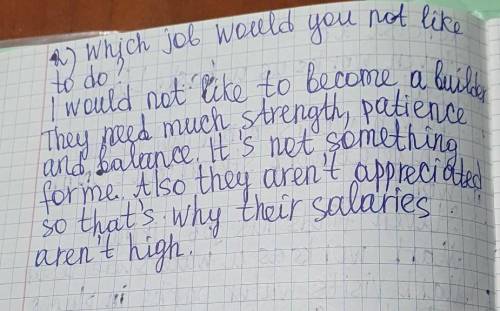 2) Which job would you not like
to do?
I would not like to become a builder
They need much strength, patience
and balance. It's not something
for me. Also they aren't appreciated
so that's why their salaries
aren't high.